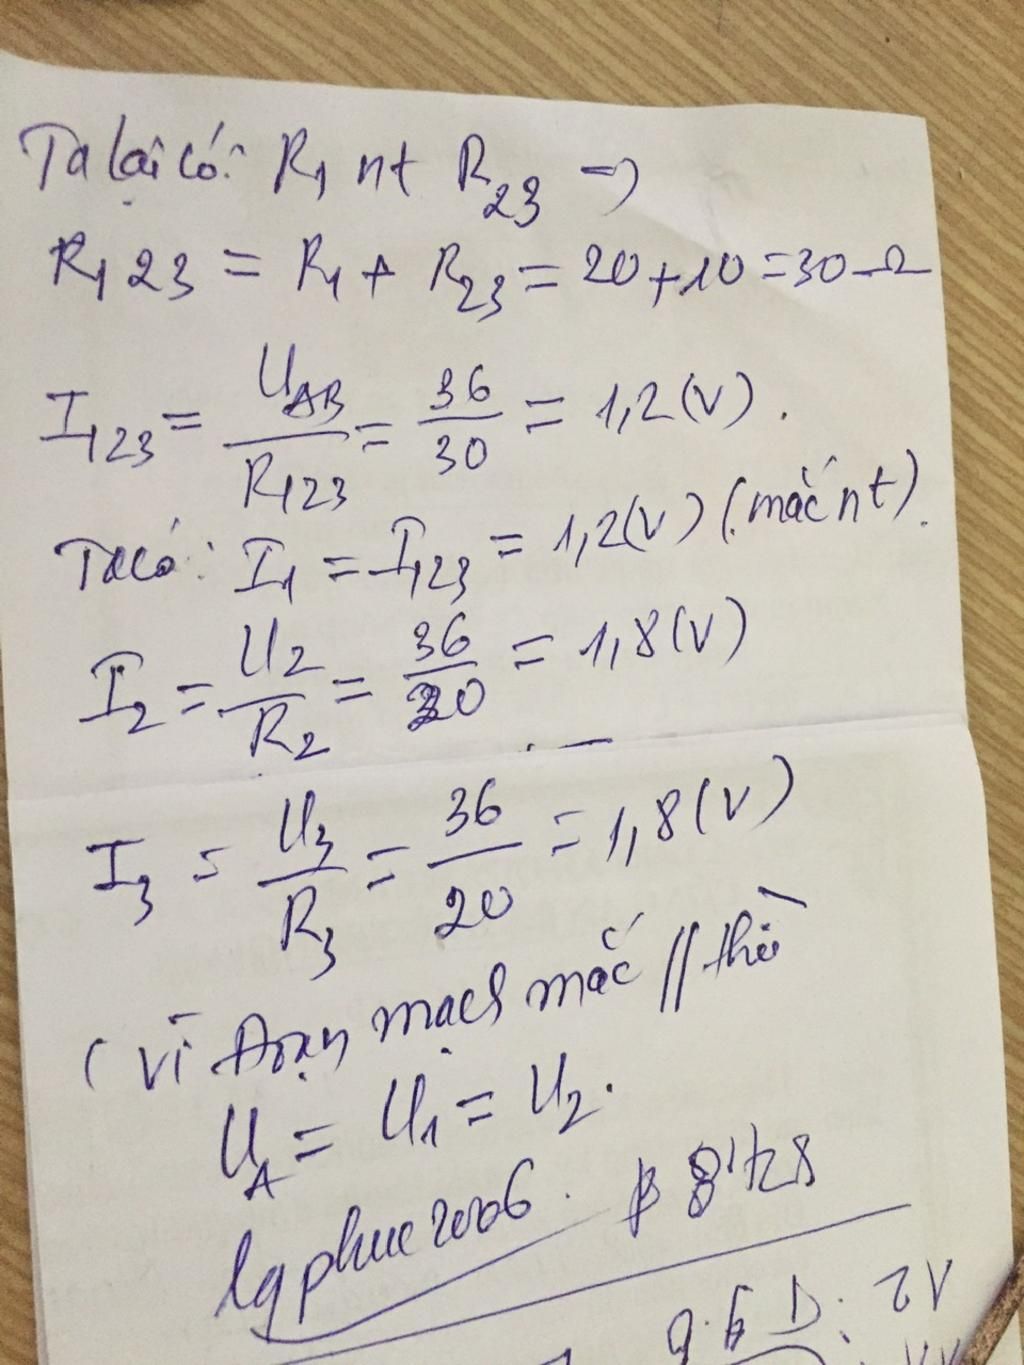 Ta lại có: R₁ nt R₂₃ →
R₁₂₃ = R₁ + R₂₃ = 20 + 10 = 30 Ω
I₁₂₃ = U_AB / R₁₂₃ = 36 / 30 = 1,2 (V).
Ta có: I₁ = I₁₂₃ = 1,2 (V) (mắc nt).
I₂ = U₂ / R₂ = 36 / 20 = 1,8 (V)
I₃ = U₃ / R₃ = 36 / 20 = 1,8 (V)
( Vì đoạn mạch mắc // thì
U_A = U₁ = U₂.
lqphuc2006.